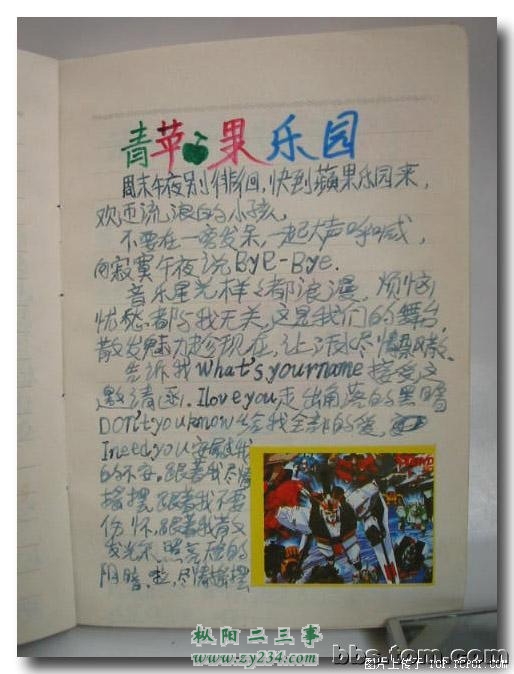 青苹果乐园
周末午夜别徘徊,快到蘋果乐园来,
欢迎流浪的小孩。
不要在一旁发呆,一起大声呼喊,
向寂寞午夜说BYE-BYE.
音乐星光样样都浪漫,烦恼
忧愁都与我无关,这是我们的舞台,
散发魅力趁现在,让汗水尽情飘散.
告诉我what's your name 接受这
邀请函.I love you 走出角落的黑暗
DON't you know 给我全部的爱,
I need you 安慰我
的不安.跟着我尽情
摇摆.跟着我不要
伤怀.跟着我散
发光 照亮你的
阴暗. 尽情摇摆
枞阳二三事
www.zy234.com
bbs.tom.com
图片上传于